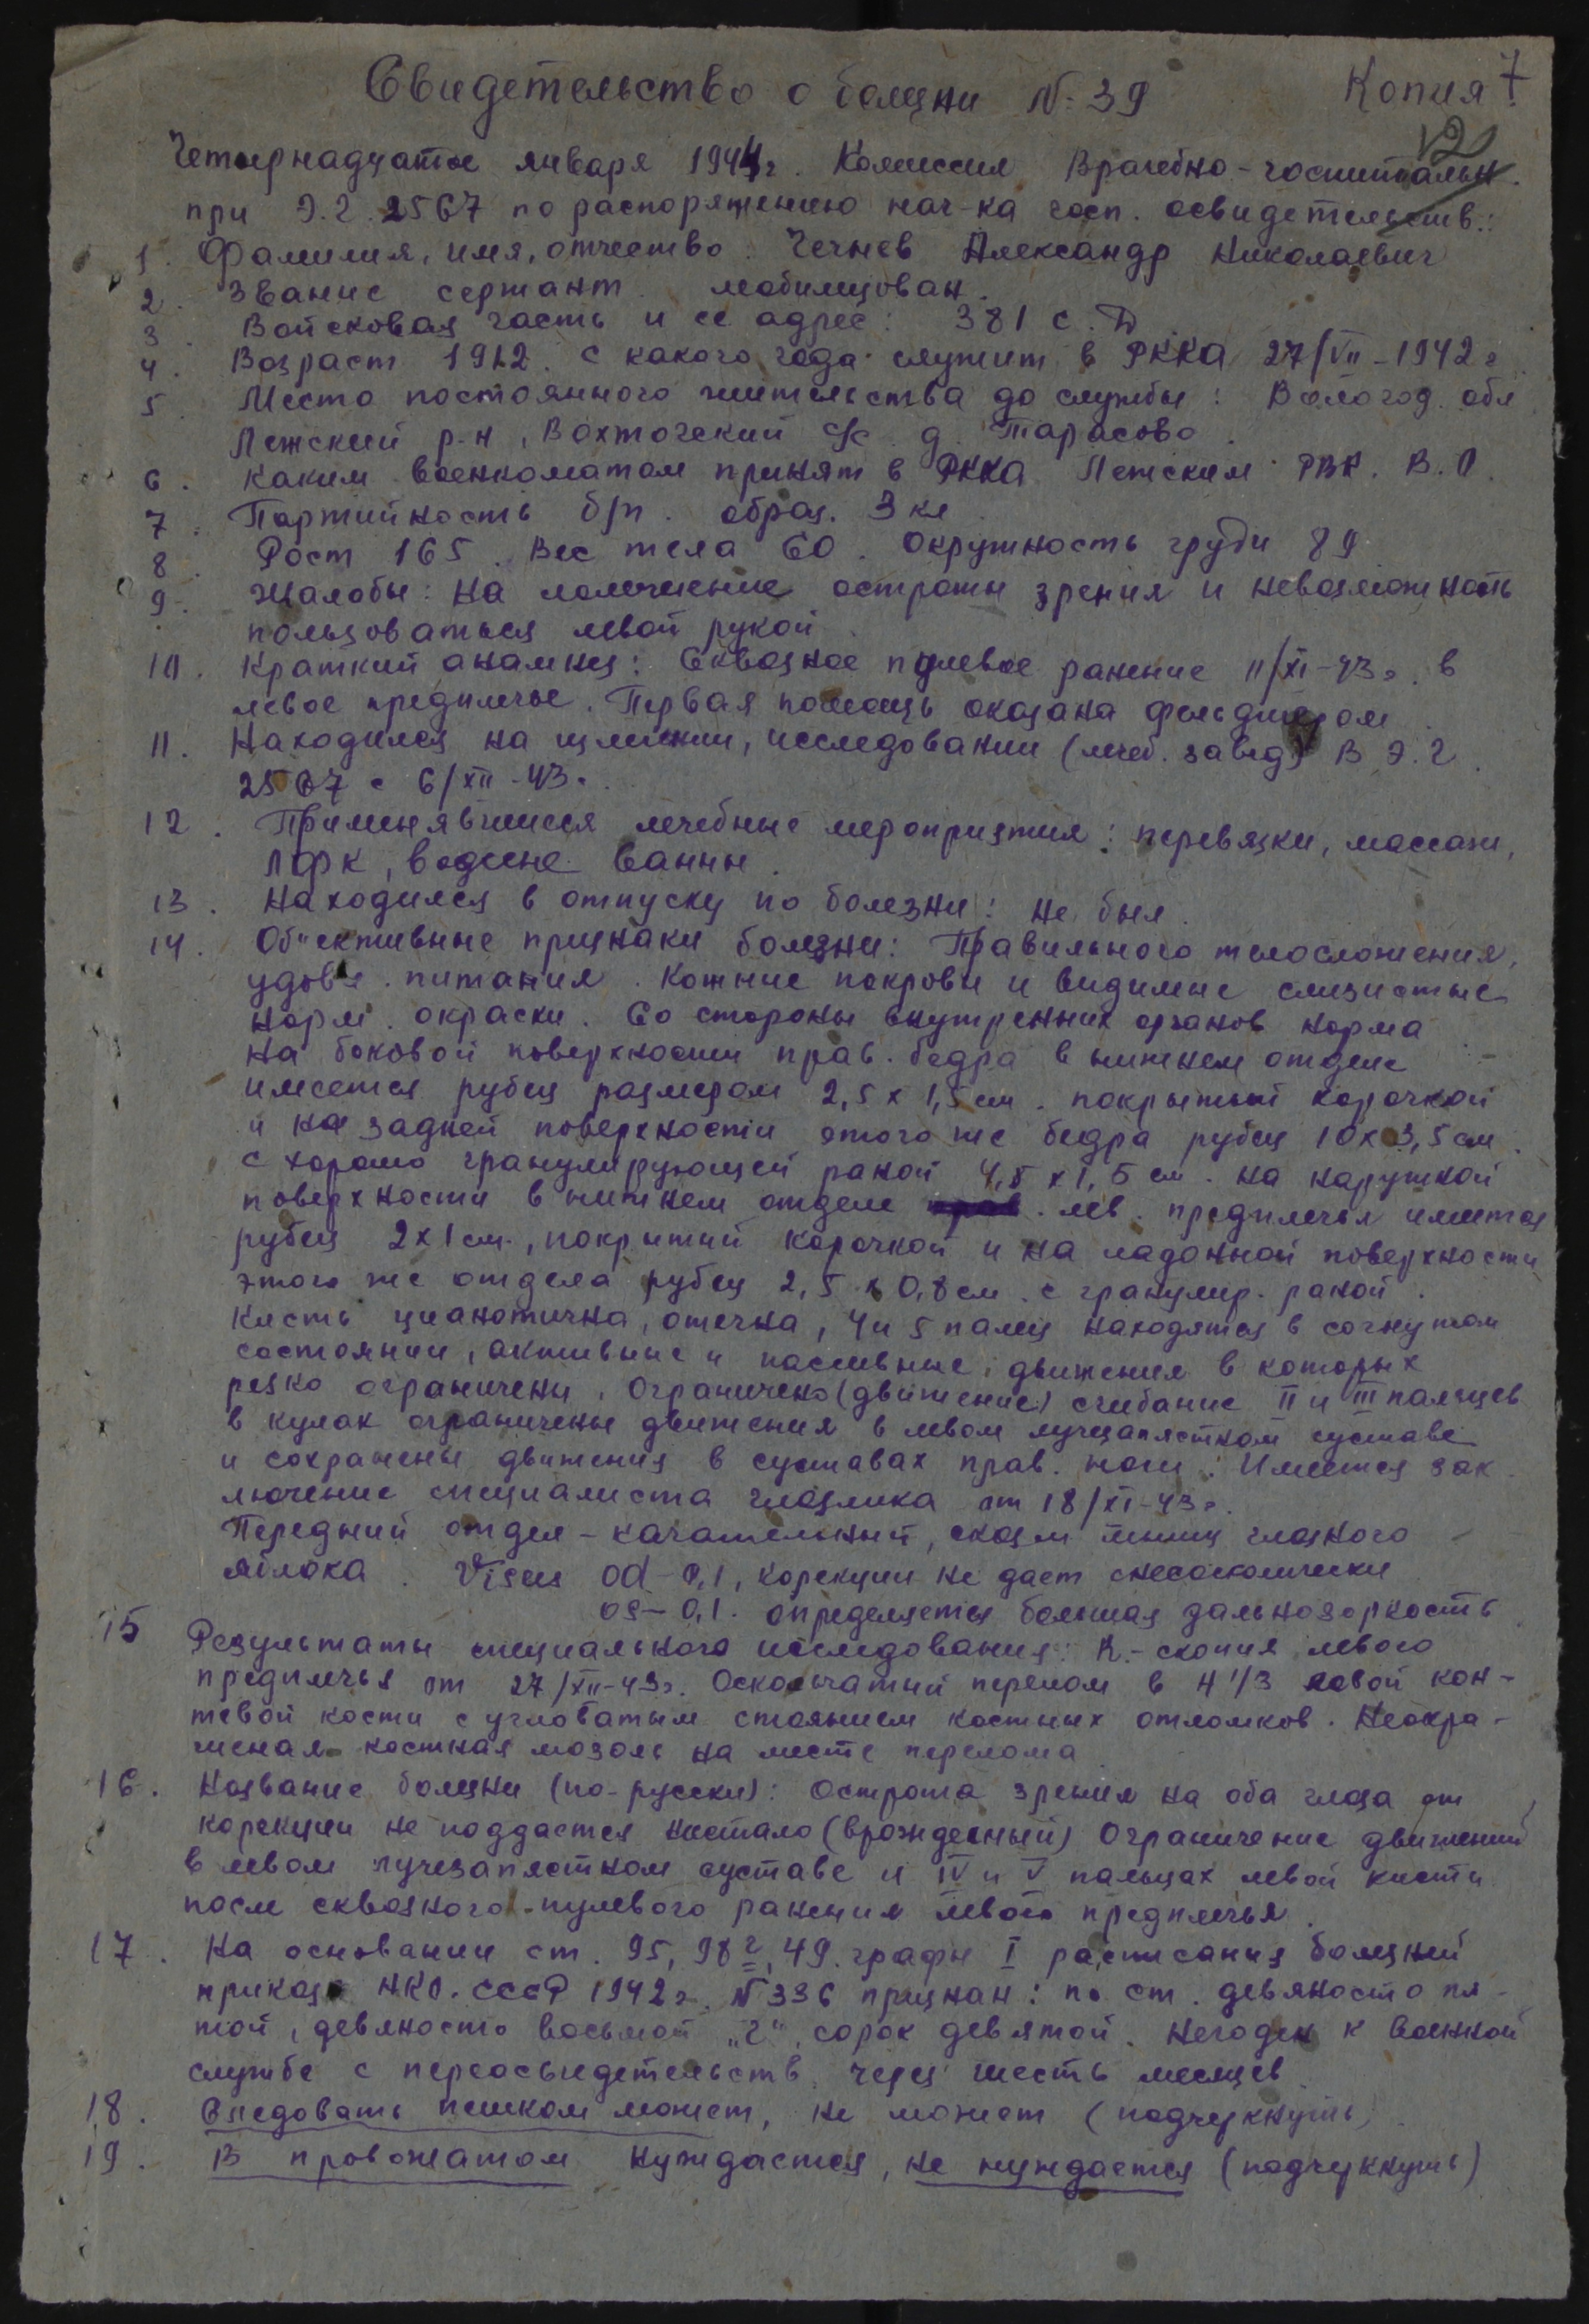 Свидетельство о болезни № 39
Копия 7
12
Четырнадцатое января 1944 г. Комиссия Врачебно-госпитальн.
при Э.Г. 2567 по распоряжению нач-ка госп. освидетельств.:
1. Фамилия, имя, отчество. Чечнев Александр Николаевич
2. Звание сержант мобилизован.
3. Войсковая часть и ее адрес: 381 с.д
4. Возраст 1912. с какого года служит в РККА 27/VII-1942 г
5. Место постоянного жительства до службы: Вологод. обл
Лежский р-н, Вохтожский с/с д. Тарасово.
6. Каким военкоматом принят в РККА Лежским РВК. В.О.
7. Партийность б/п. образ. 3 кл
8. Рост 165. Вес тела 60. Окружность груди 89
9. Жалобы: На понижение остроты зрения и невозможность
пользоваться левой рукой
10. Краткий анамнез: Сквозное пулевое ранение 11/XI-43 г. в
левое предплечье. Первая помощь оказана фельдшером.
11. Находился на излечении, исследовании (лечеб. завед) В Э.Г.
2567 с 6/XII-43 г.
12. Применявшиеся лечебные мероприятия: перевязки, массаж,
ЛФК, водяные ванны.
13. Находился в отпуску по болезни: не был.
14. Об"ективные признаки болезни: Правильного телосложения,
удовл. питания. Кожные покровы и видимые слизистые
норм. окраски. Со стороны внутренних органов норма
На боковой поверхности прав. бедра в нижнем отделе
имеется рубец размером 2,5 х 1,5 см. покрытый корочкой
и на задней поверхности этого же бедра рубец 10 х 3,5 см.
с хорошо гранулирующей раной 4,5 х 1,5 см. На наружной
поверхности в нижнем отделе лев. предплечья имеется
рубец 2 х 1 см., покрытый корочкой и на ладонной поверхности
этого же отдела рубец 2,5 х 0,8 см. с гранулир. раной.
Кисть цианотична, отечна, 4 и 5 палец находятся в согнутом
состоянии, активные и пассивные движения в которых
резко ограничены. Ограничено (движение) сгибание II и III пальцев
в кулак ограничены движения в левом лучезапястном суставе
и сохранены движения в суставах прав. ноги. Имеется зак
лючение специалиста глазника от 18/XI-43 г.
Передний отдел - качательный, мышц глазного
яблока. Visus od-0,1, корекции не дает
os-0,1. определяется большая дальнозоркость
15 Результаты специального исследования: R.-скопия левого
предплечья от 27/XII-43 г. Оскольчатый перелом в Н 1/3 левой кон-
тевой кости с угловатым стоянием костных отломков. Неокра-
шеная костная мозоль на месте перелома
16. Название болезни (по-русски): Острота зрения на оба глаза от
корекции не поддается (врожденный) Ограничение движений
в левом лучезапястном суставе и IV и V пальцах левой кисти
после сквозного пулевого ранения левого предплечья.
17. На основании ст. 95, 98 г, 49. графы I расписания болезней
приказа НКО. СССР 1942 г. № 336 признан: по ст. девяносто пя-
той, девяносто восьмой „г", сорок девятой. Негоден к военной
службе с переосвидетельств. через шесть месяцев
18. Следовать пешком может, не может (подчеркнуть)
19. В провожатом нуждается, не нуждается (подчеркнуть)